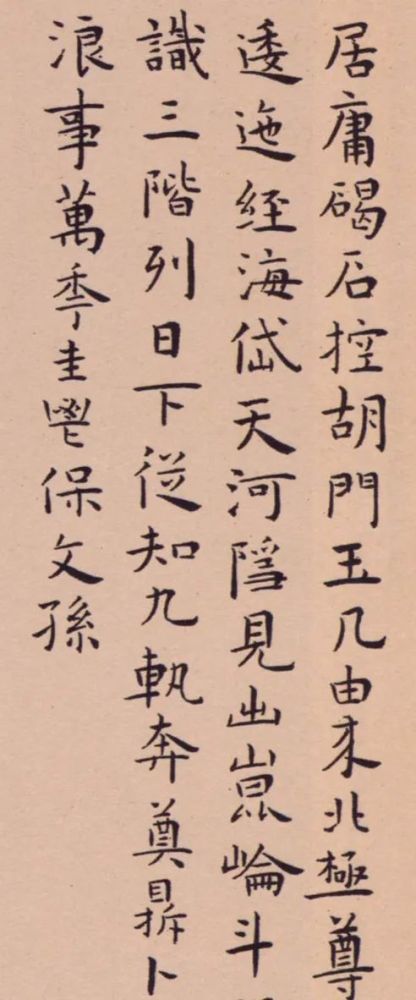 居庸碣石控胡門玉几由来北極尊
逶迤經海岱天河隱見出崑崙斗
識三階列日下從知九軌奔奠鼎卜
浪事萬秊圭鬯保文孫